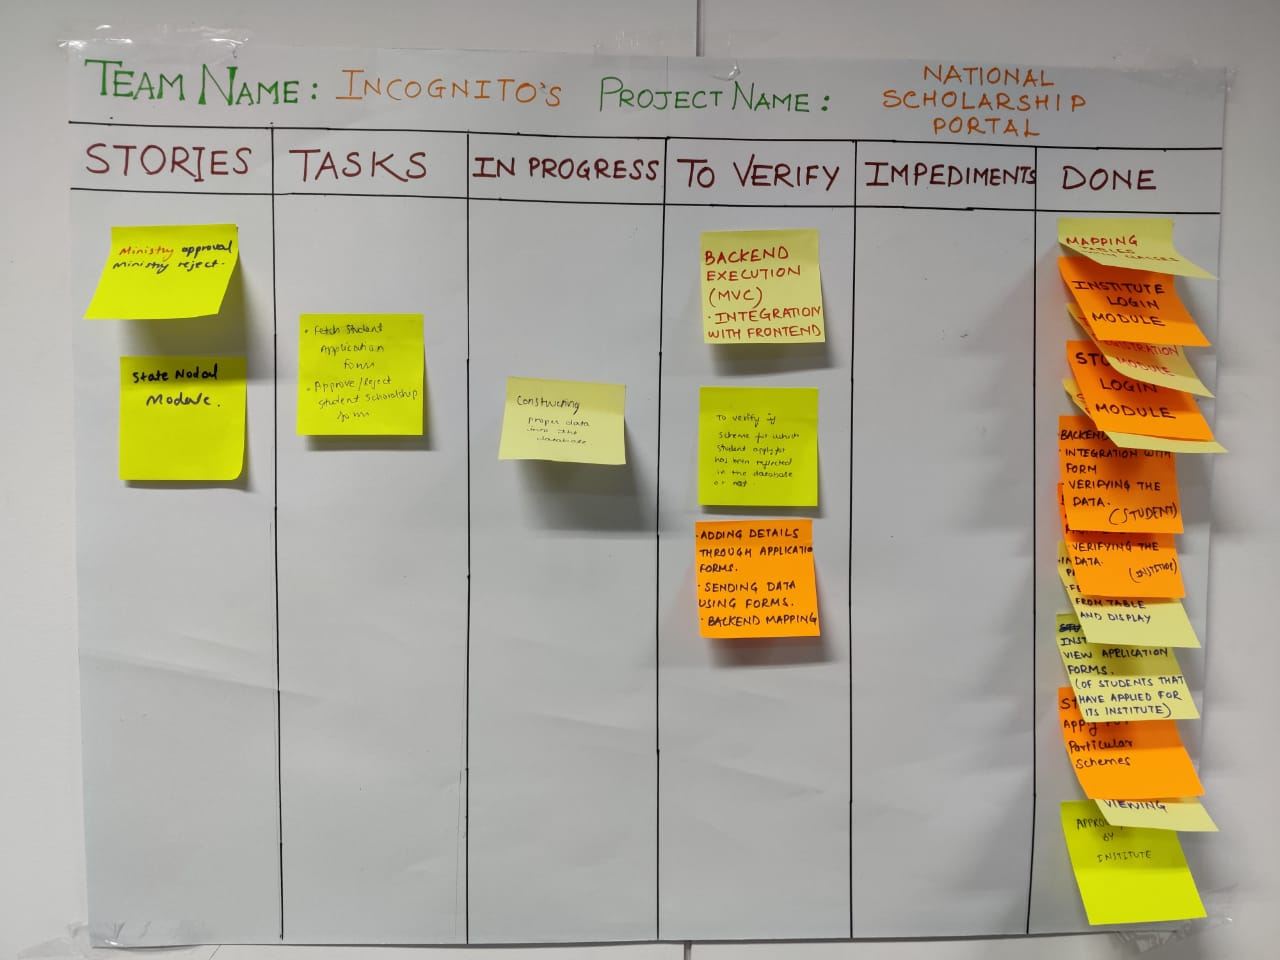 TEAM NAME: INCOGNITO'S PROJECT NAME: NATIONAL
SCHOLARSHIP
PORTAL
STORIES
TASKS
IN PROGRESS
TO VERIFY
IMPEDIMENTS
DONE
Ministry approval
Ministry reject.
State Nodal
Module.
• Fetch Student
Application
form
• Approve/Reject
Student Scholarship
form
Constructing
proper data
into the
database
BACKEND
EXECUTION
(MVC)
· INTEGRATION
WITH FRONTEND
To verify if
scheme for which
student apply for
has been reflected
in the database
or not.
· ADDING DETAILS
THROUGH APPLICATIO
FORMS.
· SENDING DATA
USING FORMS.
· BACKEND MAPPING
MAPPING
TABLES
WITH CLASSES
INSTITUTE
LOGIN
MODULE
REGISTRATION
MODULE
LOGIN
MODULE
BACKEND
INTEGRATION WITH
FORM
VERIFYING THE
DATA.
(STUDENT)
VERIFYING THE
DATA.
FROM TABLE
AND DISPLAY
VIEW APPLICATION
FORMS.
(OF STUDENTS THAT
HAVE APPLIED FOR
ITS INSTITUTE)
Apply
Particular
Schemes
VIEWING
BY
INSTITUTE